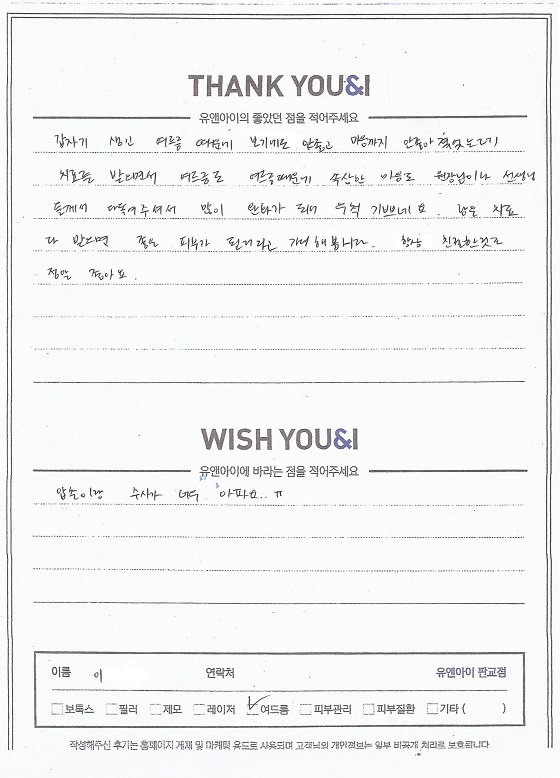 THANK YOU&I
유앤아이의 좋았던 점을 적어주세요
갑자기 생긴 여드름 때문에 보기에도 안좋고 마음까지 안좋아 졌었는데
치료를 받으면서 여드름도 여드름때문에 속상한 마음도 원장님이나 선생님
들께서 다독여주셔서 많이 완화가 되어 무척 기쁘네요. 남은 치료
다 받으면 좋은 피부가 될거라고 기대해봅니다. 항상 친절한것도
정말 좋아요.
WISH YOU&I
유앤아이에 바라는 점을 적어주세요
압출이랑 주사가 너무 아파요.. ㅠ
이름 이 연락처 유앤아이 판교점
보톡스 필러 제모 레이저 여드름 피부관리 피부질환 기타 ( )
작성해주신 후기는 홈페이지 게재 및 마케팅 용도로 사용되며 고객님의 개인정보는 일부 비공개 처리로 보호됩니다.